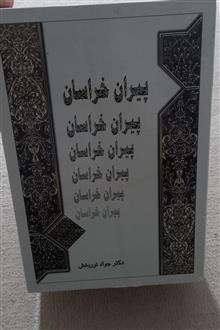 پیران خراسان
پیران خراسان
پیران خراسان
پیران خراسان
پیران خراسان
پیران خراسان
دکتر جواد نوربخش